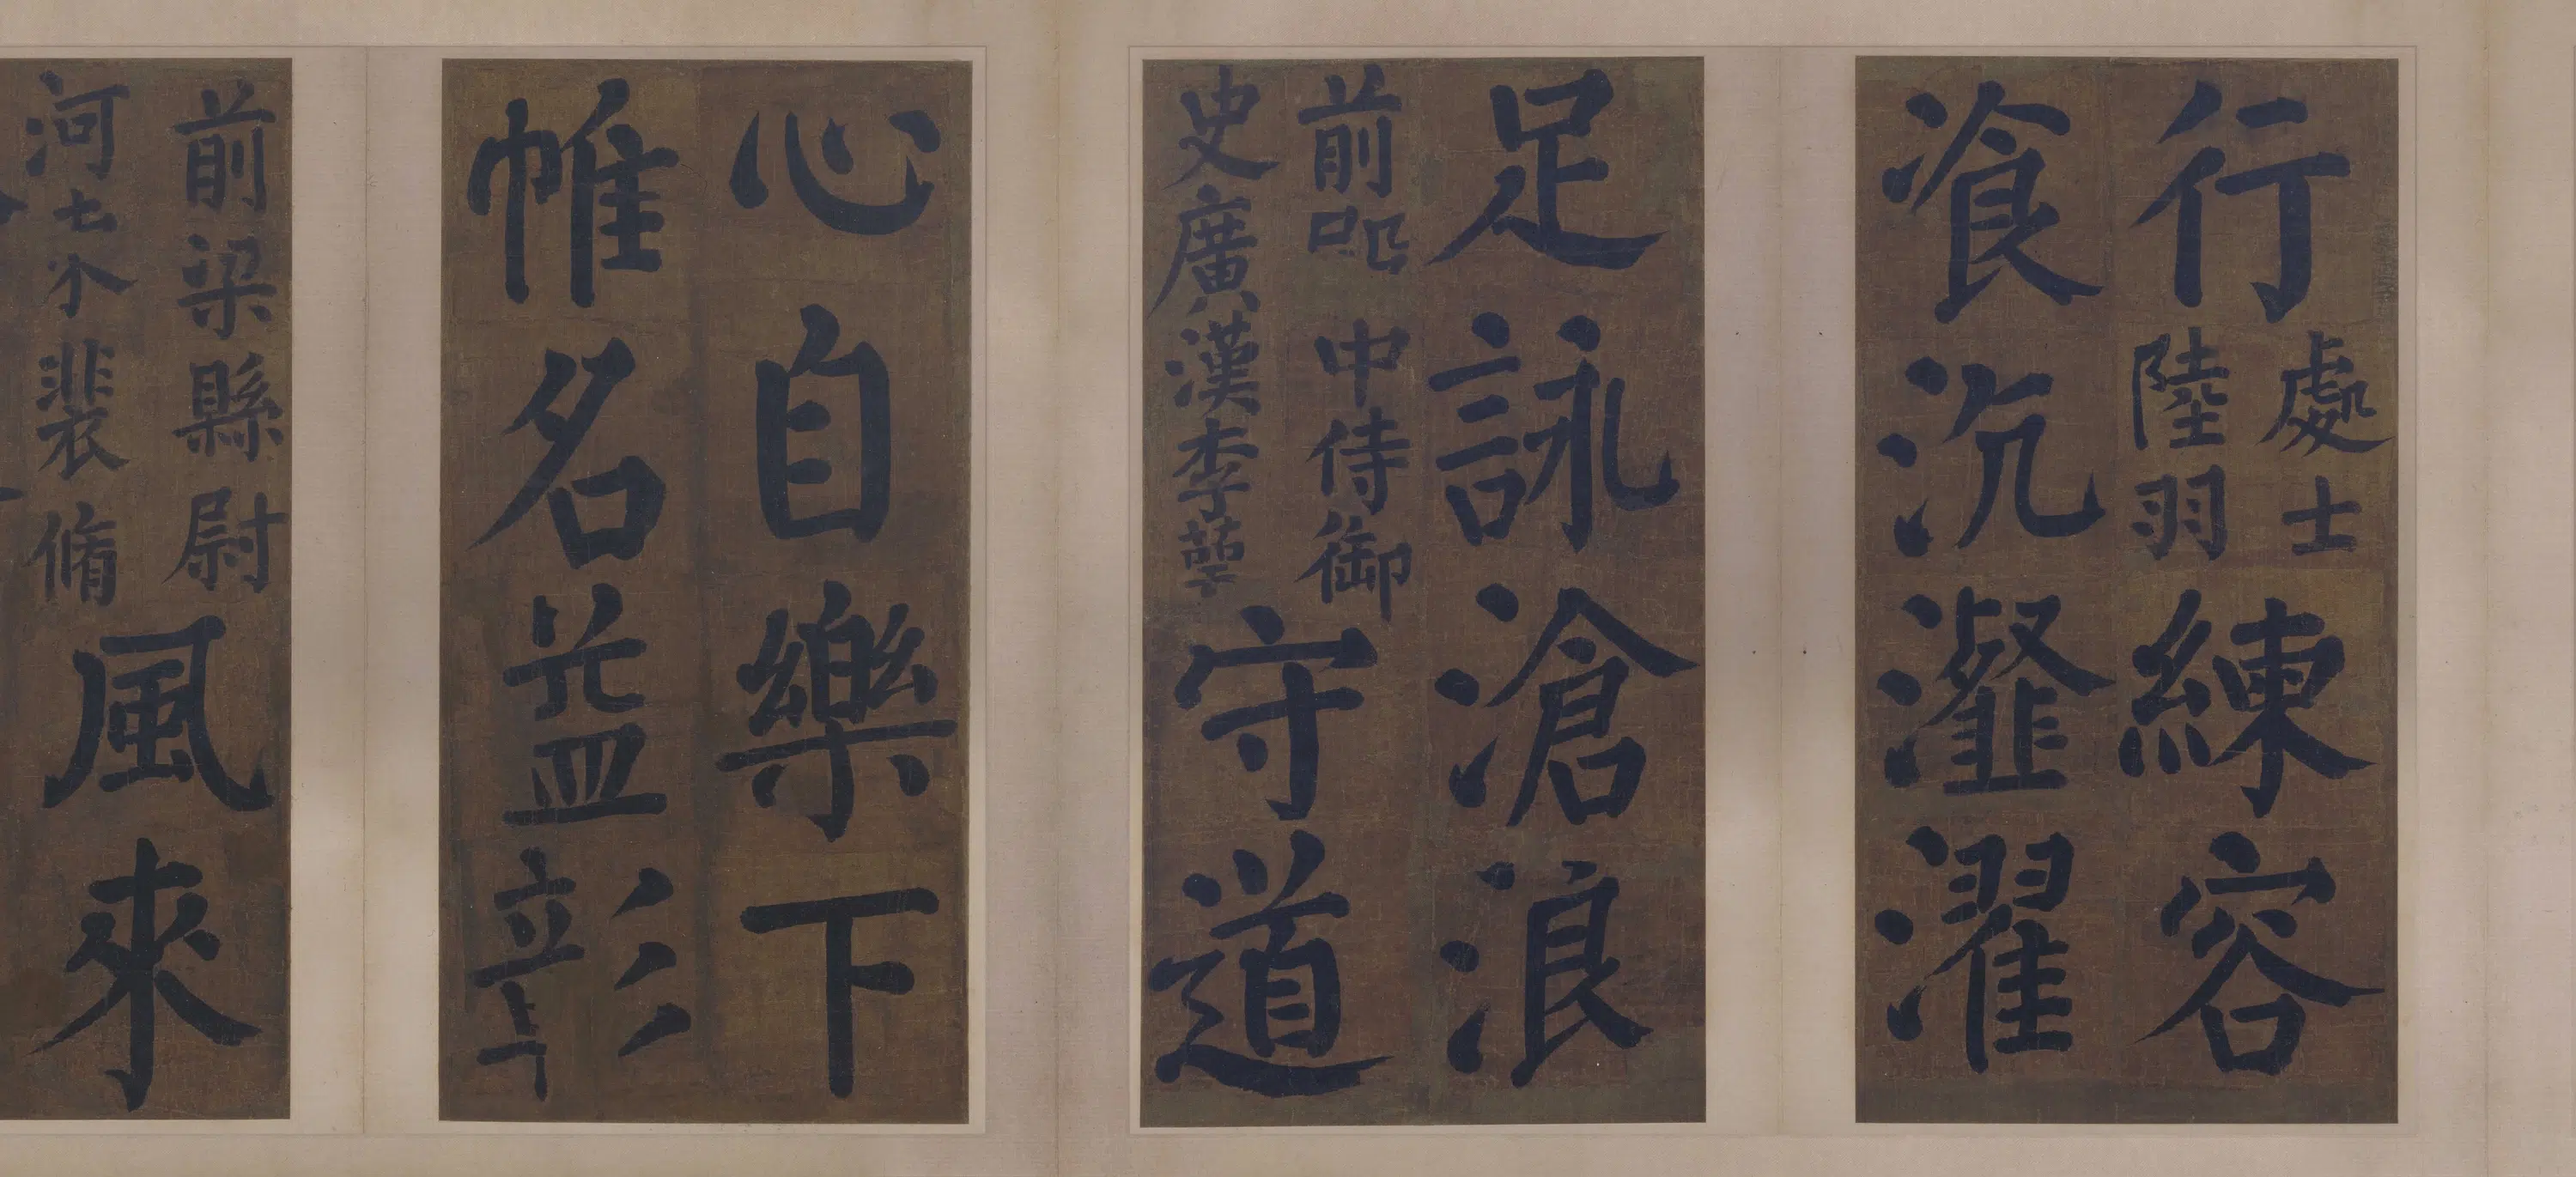 行
處士
陸羽
練容
湌沆瀣濯
足詠滄浪
前 中侍御
史廣漢李萼
守道
心自樂下
帷名益彰
前梁縣尉
河 裴脩
風來